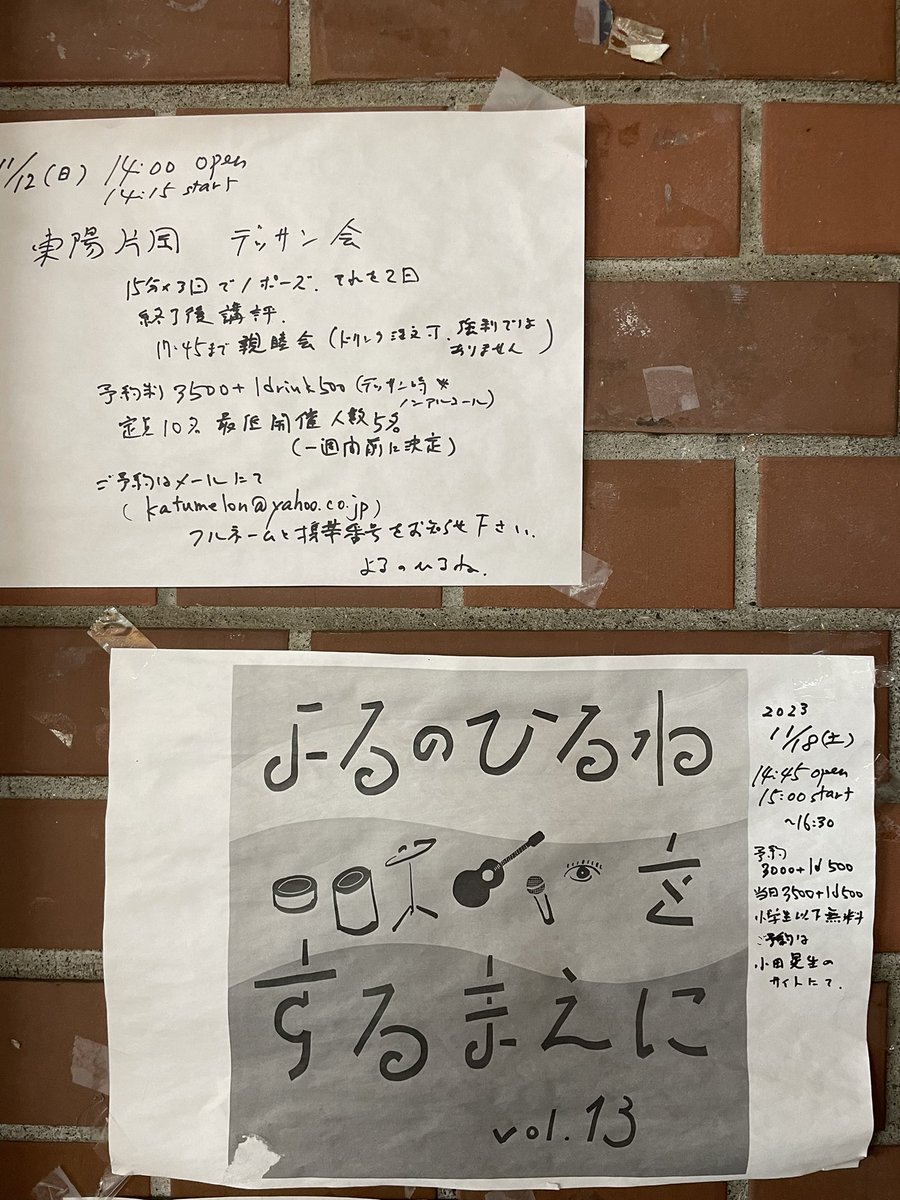 11/12(日) 14:00 open
14:15 start
東陽片岡 デッサン会
15分×3回で1ポーズ、それを2回
終了後講評.
17:45まで親睦会(ドリンク注文可、強制ではありません)
予約制 3500+1drink500(デッサン時※ノンアルコール)
定員10名 最低開催人数5名
(一週間前に決定)
ご予約はメールにて
(katumelon@yahoo.co.jp)
フルネームと携帯番号をお知らせ下さい.
よるのひるね.
よるのひるね
を
するまえに
vol.13
2023
11/18(土)
14:45 open
15:00 start
~16:30
予約
3000+1d 500
当日3500+1d500
小学生以下無料
ご予約は
小田晃生の
サイトにて.